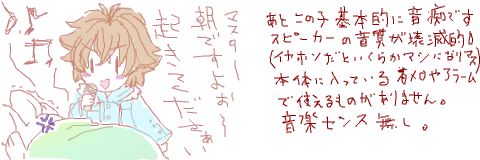 マスター
朝ですよぉ～
起きてくださぁい
あと この子 基本的に 音痴です
スピーカーの音質が壊滅的!
(イヤホンだといくらかマシになりマス)
本体に入っている 着メロやアラーム
で使えるものがありません。
音楽センス無し。